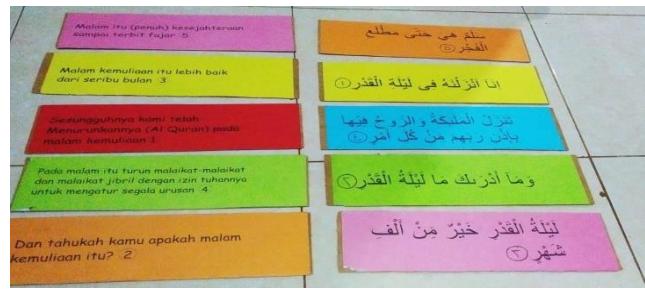 Malam itu (penuh) kesejahteraan
sampai terbit fajar 5
Malam kemuliaan itu lebih baik
dari seribu bulan 3
Sesungguhnya kami telah
Menurunkannya (Al Quran) pada
malam kemuliaan 1
Pada malam itu turun malaikat-malaikat
dan malaikat jibril dengan izin tuhannya
untuk mengatur segala urusan 4
Dan tahukah kamu apakah malam
kemuliaan itu? 2
سَلٰمٌ هِيَ حَتّٰى مَطْلَعِ
الْفَجْرِ ٥
اِنَّا اَنْزَلْنٰهُ فِى لَيْلَةِ الْقَدْرِ ١
تَنَزَّلُ الْمَلٰۤىِٕكَةُ وَالرُّوْحُ فِيْهَا
بِاِذْنِ رَبِّهِمْ مِنْ كُلِّ اَمْرٍ ٤
وَمَا أَدْرٰىكَ مَا لَيْلَةُ الْقَدْرِ ٢
لَيْلَةُ الْقَدْرِ خَيْرٌ مِنْ أَلْفِ
شَهْرٍ ٣